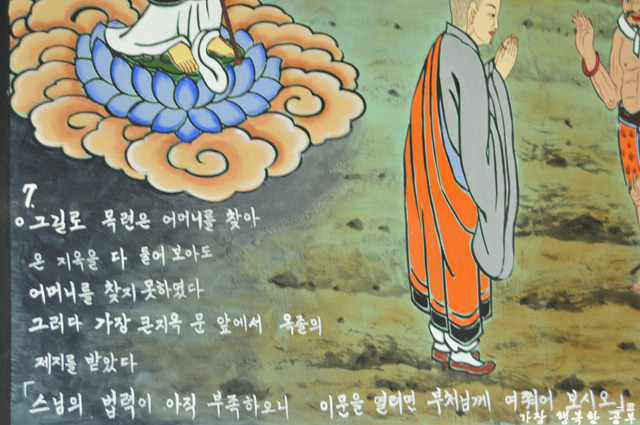 7.
그길로 목련은 어머니를 찾아
온 지옥을 다 돌어 보아도
어머니를 찾지 못하였다
그러다 가장 큰지옥 문 앞에서 옥졸의
제지를 받았다
「스님의 법력이 아직 부족하오니 이문을 열려면 부처님께 여쭤어 보시오」
가장 행복한 공부